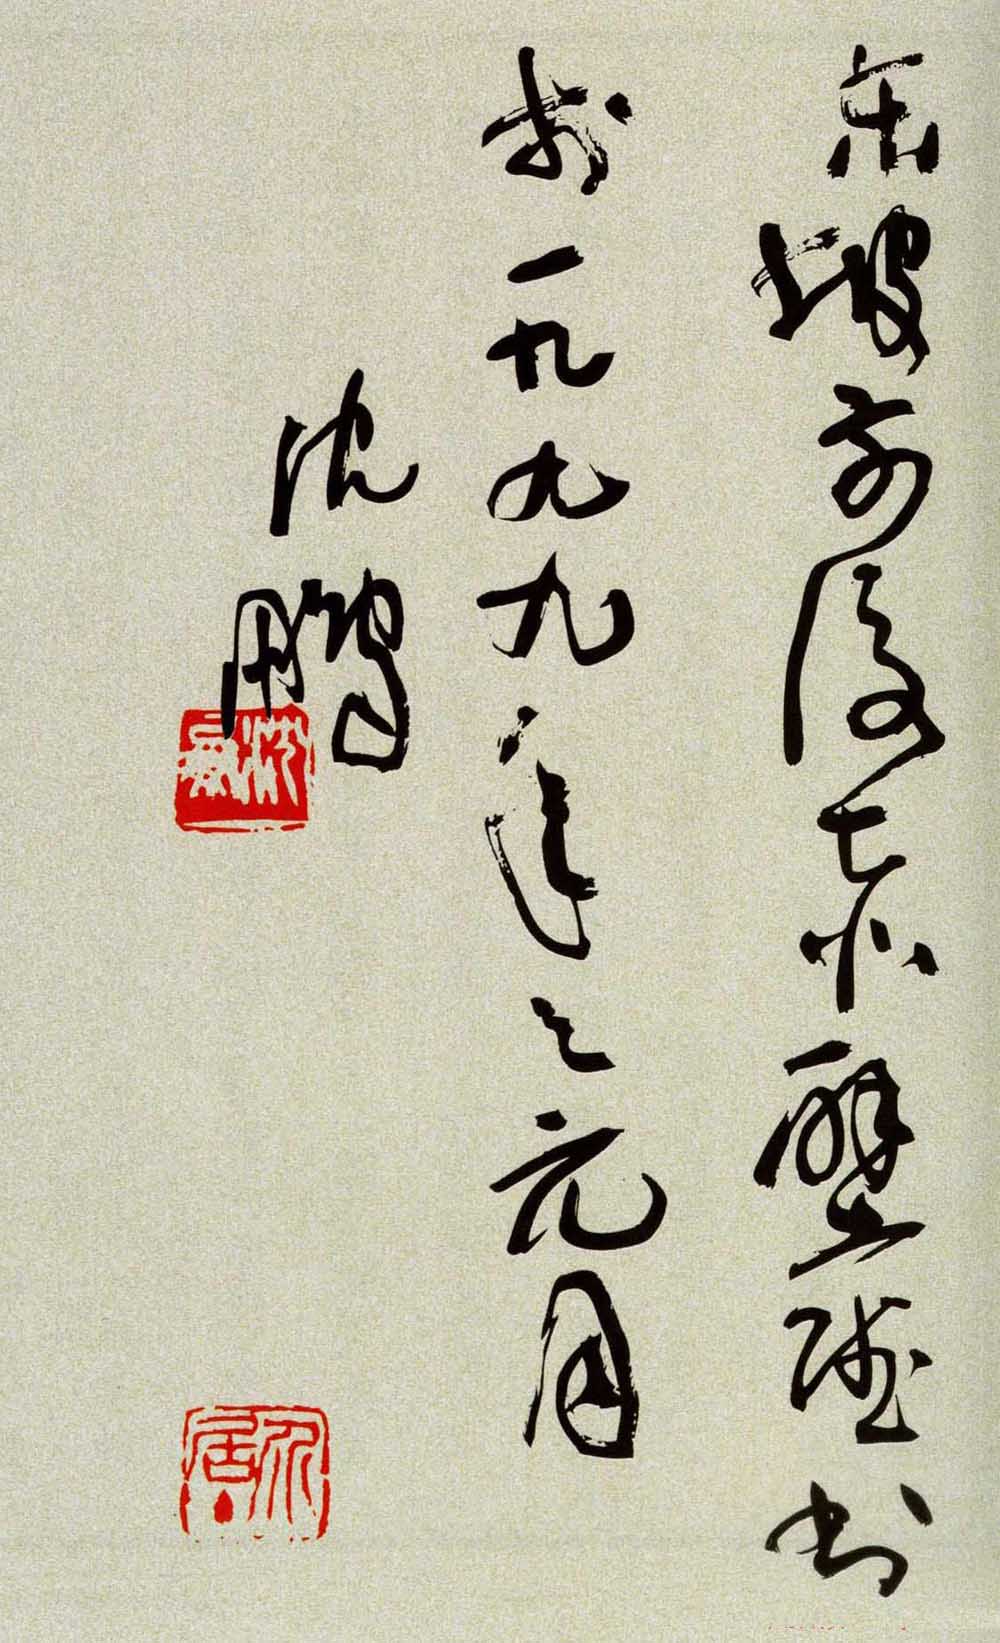 東坡前後赤壁賦書
於一九九九年之元月
沈鵬
沈鵬
介居